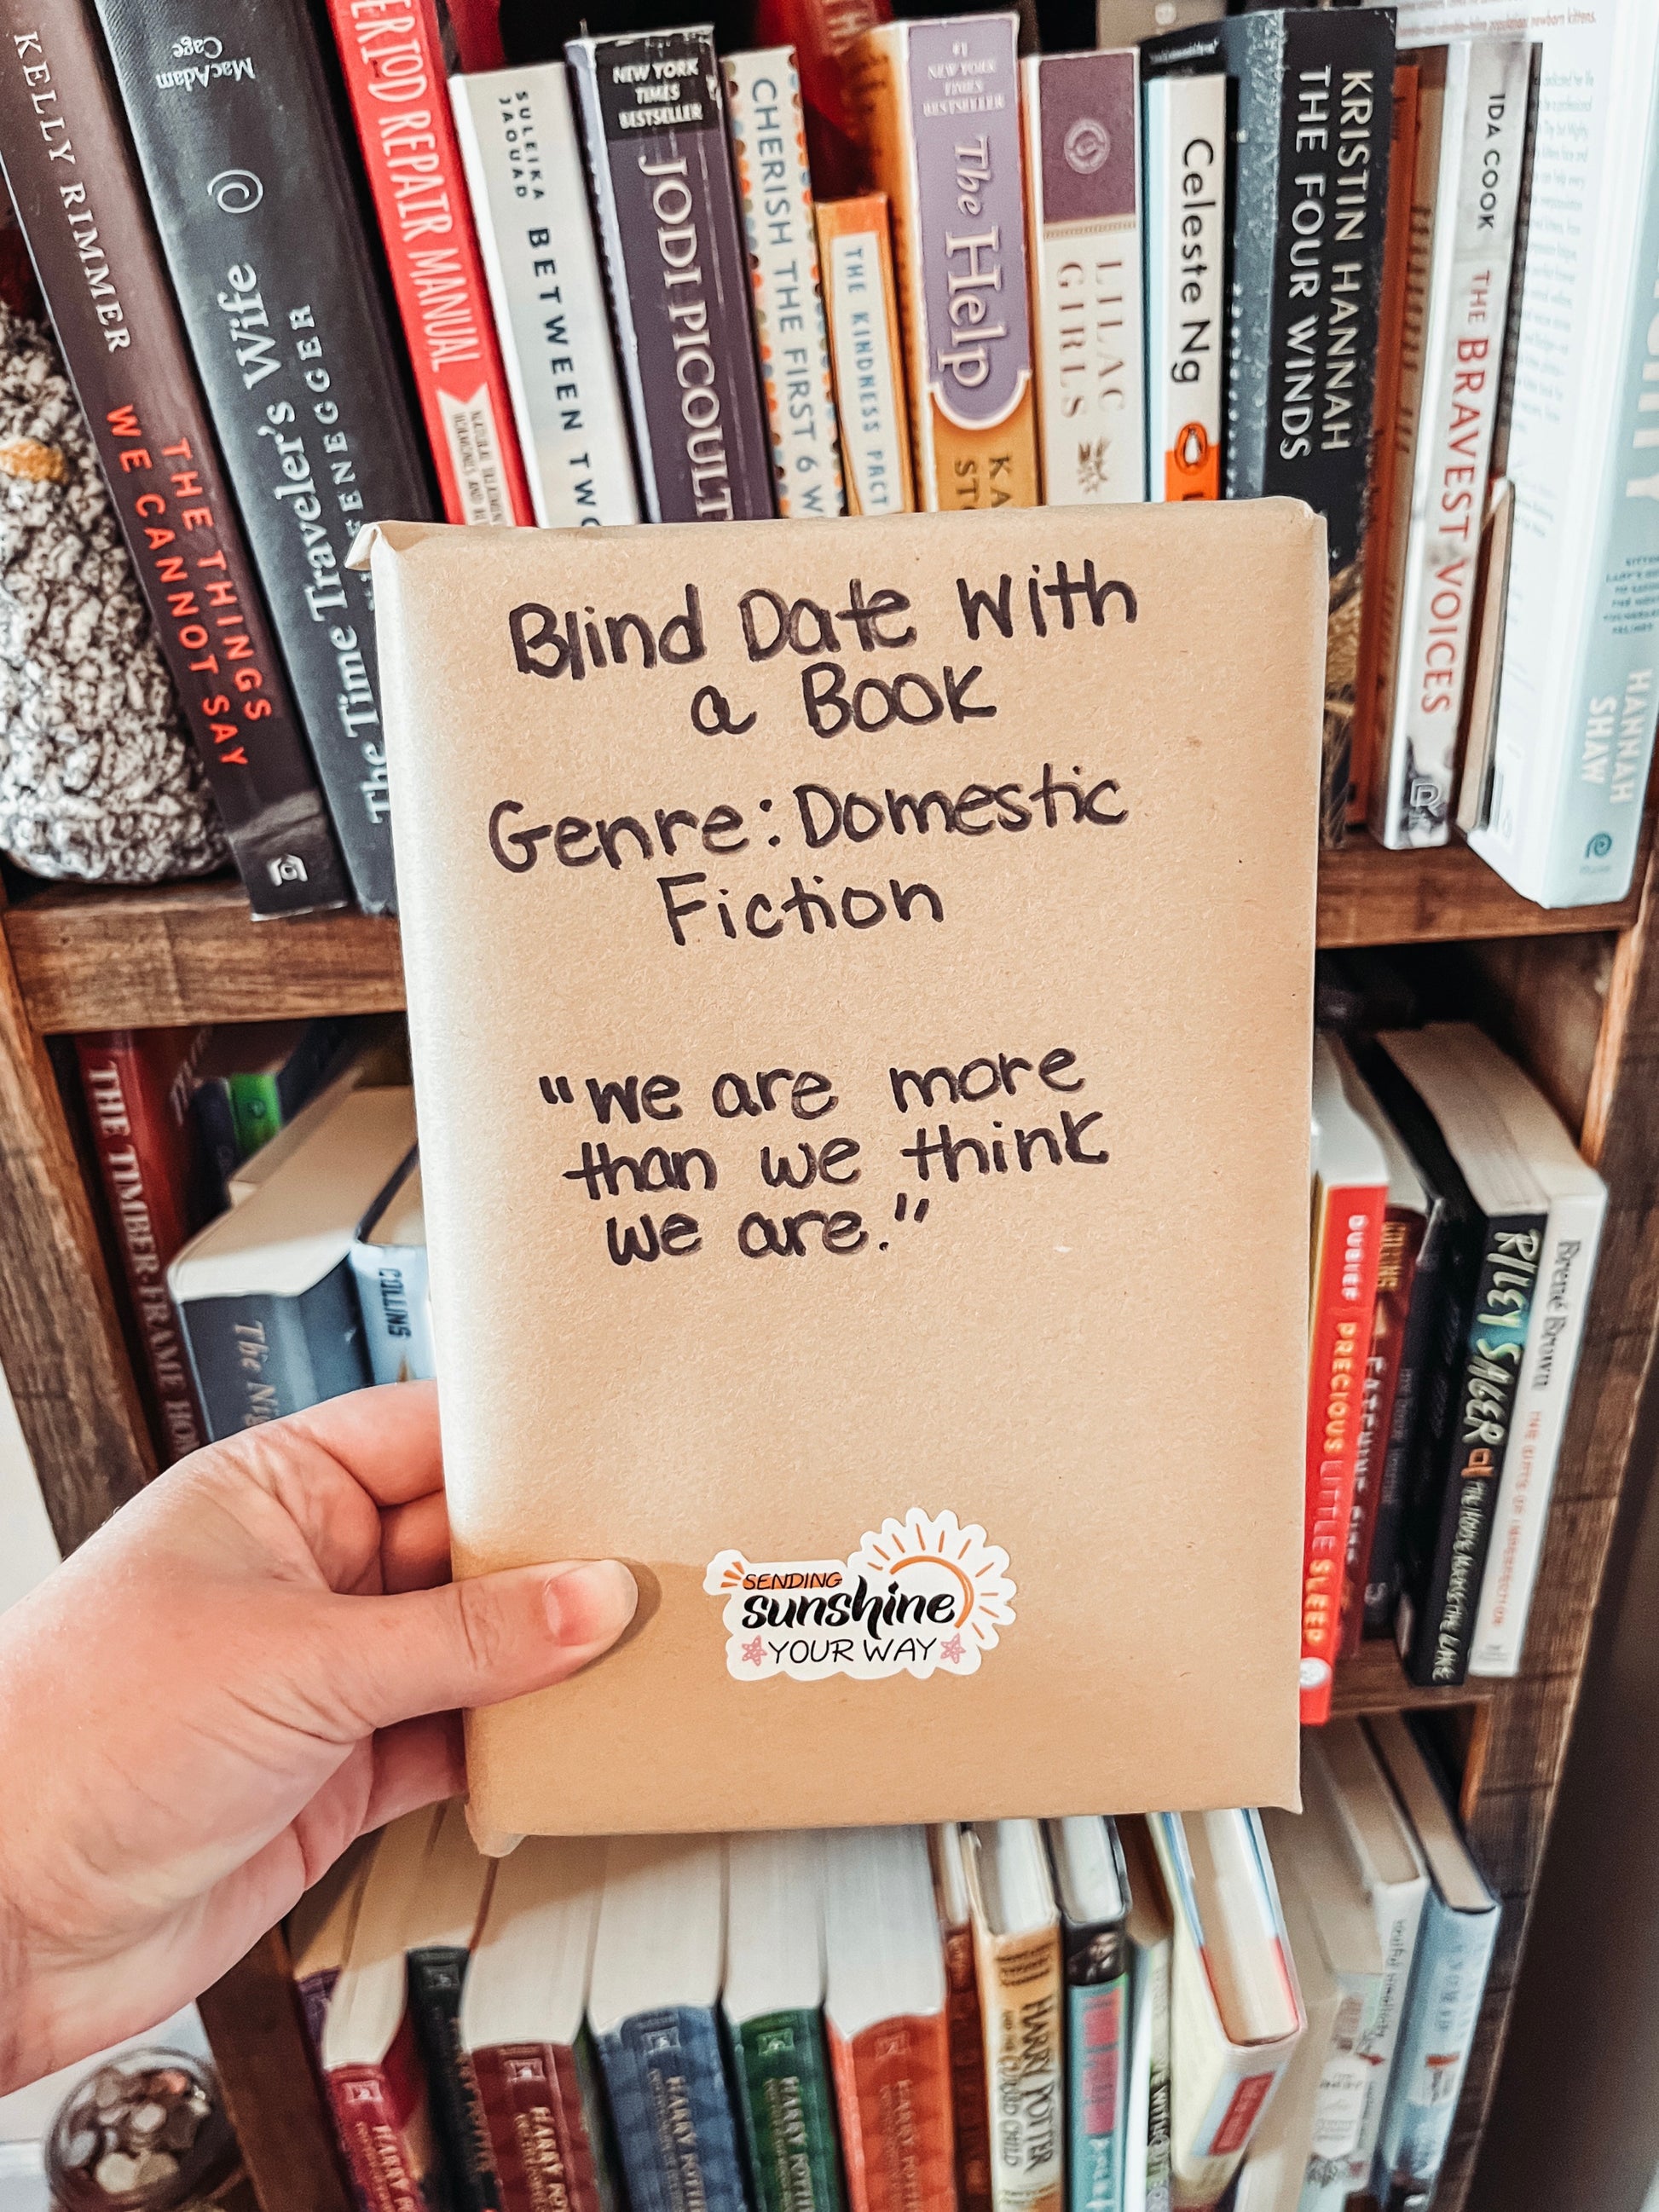 KELLY RIMMER
THE THINGS
WE CANNOT SAY
MacAdam
Cage
The Time Traveler's Wife
PERIOD REPAIR MANUAL
SULEIKA
JAOUAD
BETWEEN TWO
NEW YORK
TIMES
BESTSELLER
JODI PICOULT
CHERISH THE FIRST 6 W
THE KINDNESS PACT
#1
NEW YORK
TIMES
BESTSELLER
The Help
LILAC
GIRLS
Celeste Ng
KRISTIN HANNAH
THE FOUR WINDS
IDA COOK
THE BRAVEST VOICES
HANNAH
SHAW
Blind Date With
a Book
Genre: Domestic
Fiction
"we are more
than we think
we are."
SENDING
sunshine
YOUR WAY
THE TIMBER-FRAME HO
The Nig
COLLINS
DUBIEF PRECIOUS LITTLE SLEEP
RILEY SAGER
THE HOUSE ACROSS THE LAKE
Brené Brown
THE GIFTS OF IMPERFECTION
HARRY
HARRY
HARRY POTTER
HARRY POTTER
HARRY
HARRY POTTER